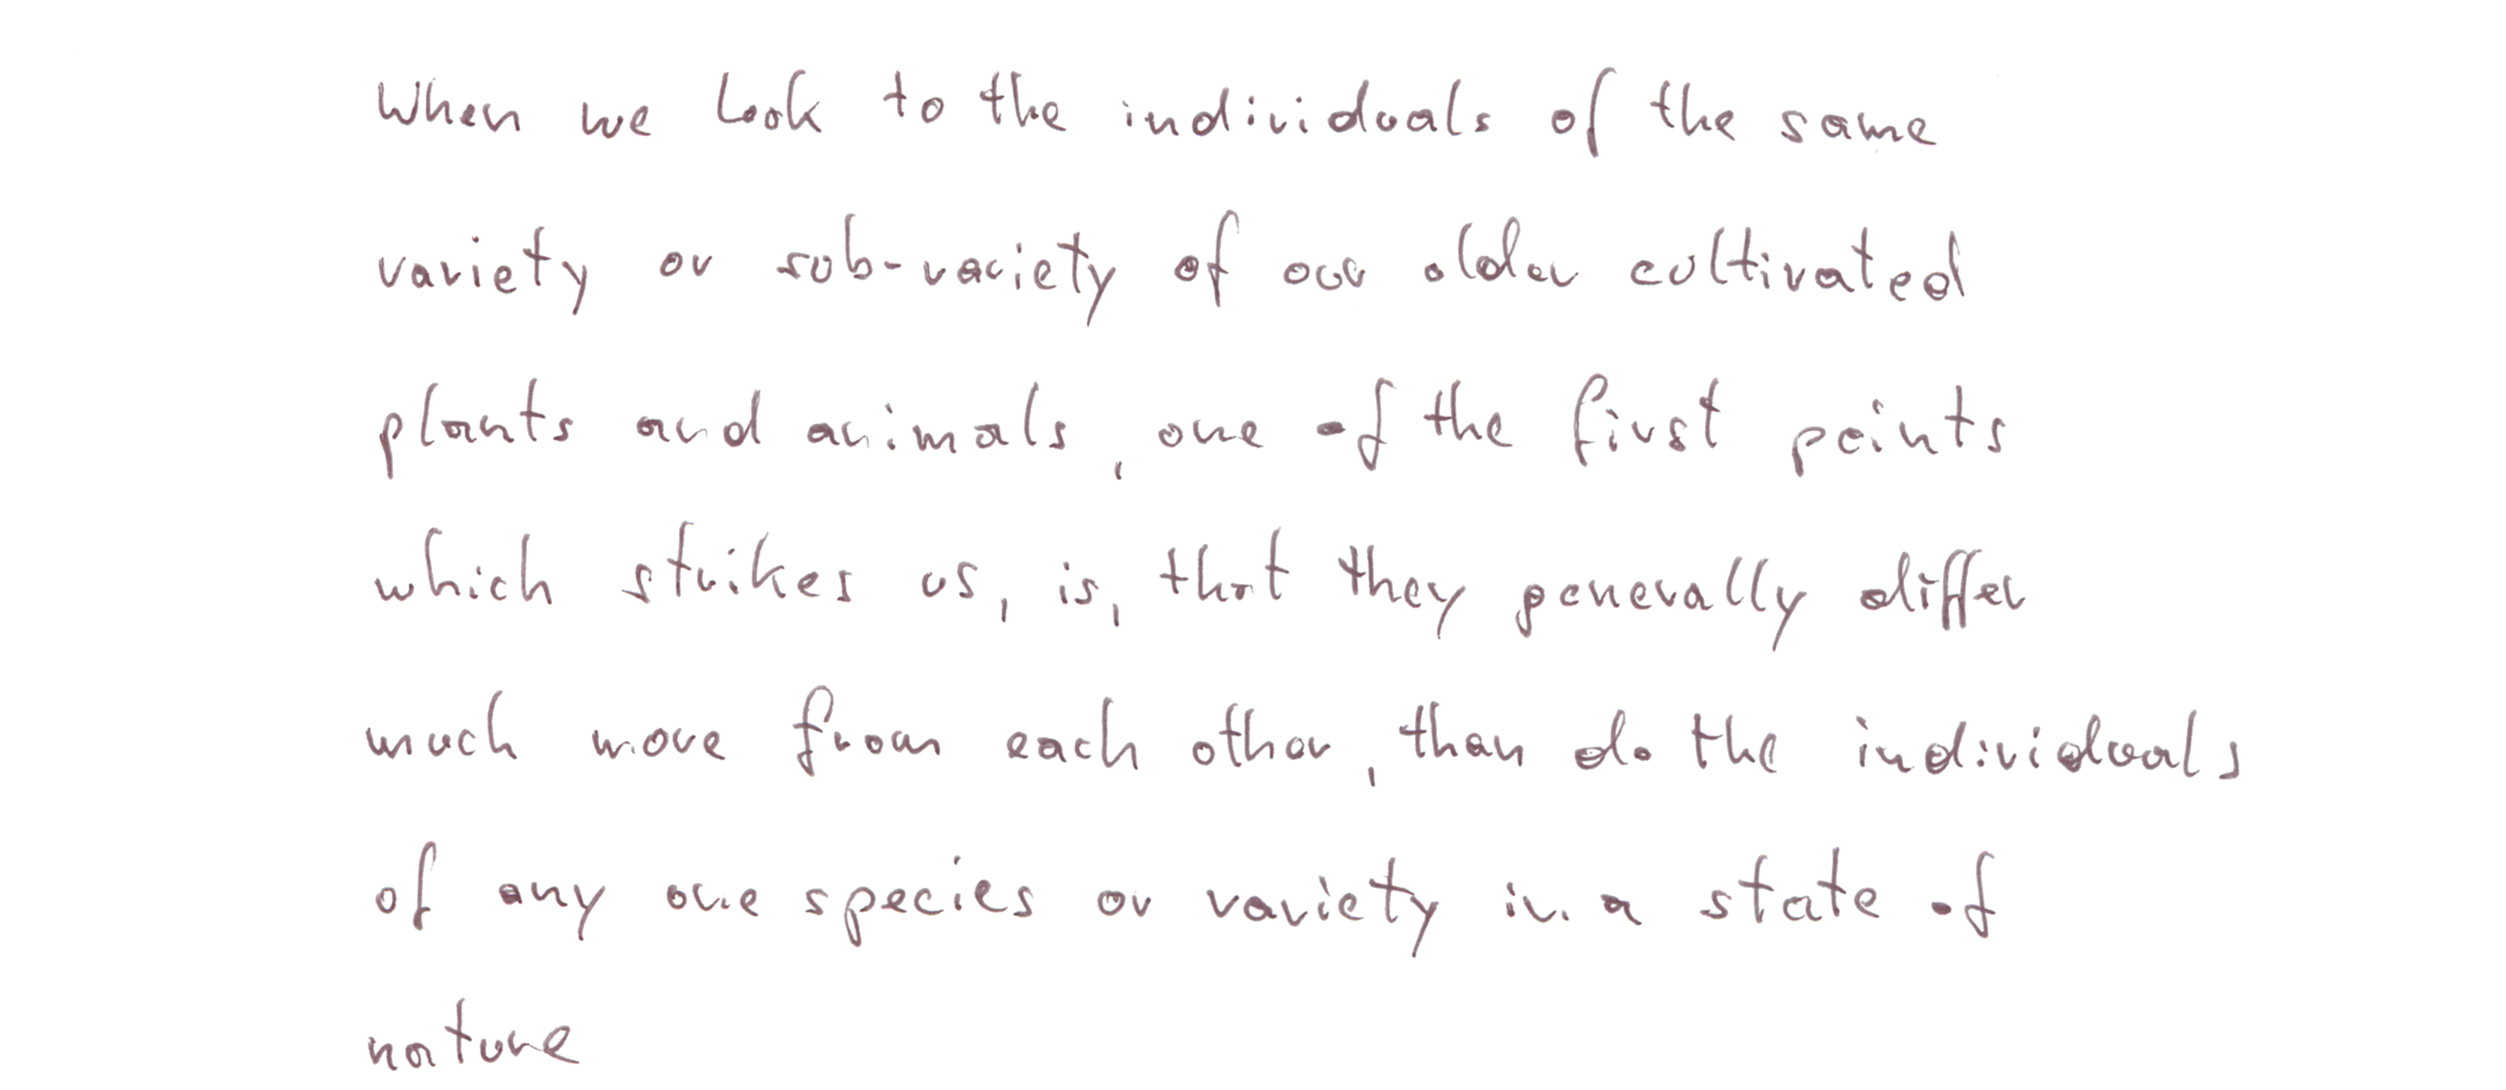 When we look to the individuals of the same
variety or sub-variety of our older cultivated
plants and animals, one of the first points
which strikes us, is, that they generally differ
much more from each other, than do the individuals
of any one species or variety in a state of
nature